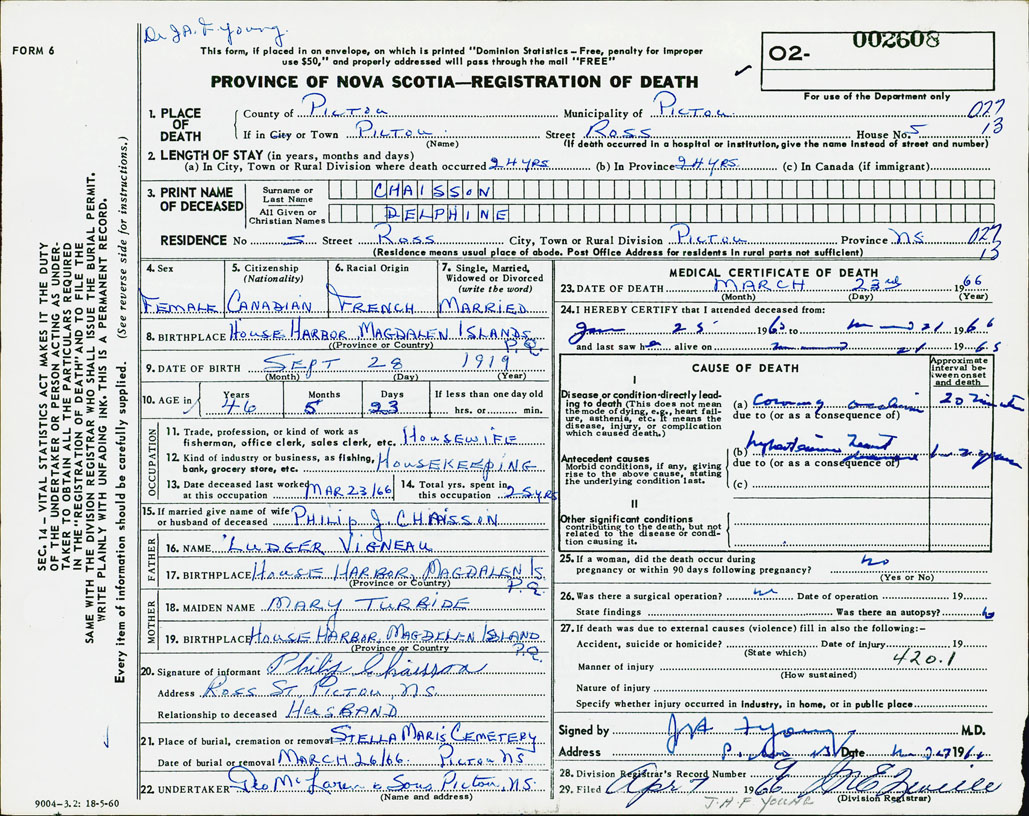 Dr J.A.F. Young.
FORM 6
This form, if placed in an envelope, on which is printed "Dominion Statistics – Free, penalty for improper
use $50," and properly addressed will pass through the mail "FREE"
PROVINCE OF NOVA SCOTIA—REGISTRATION OF DEATH
O2- 002608
For use of the Department only
SEC. 14 – VITAL STATISTICS ACT MAKES IT THE DUTY
OF THE UNDERTAKER OR PERSON ACTING AS UNDER-
TAKER TO OBTAIN ALL THE PARTICULARS REQUIRED
IN THE "REGISTRATION OF DEATH" AND TO FILE THE
SAME WITH THE DIVISION REGISTRAR WHO SHALL ISSUE THE BURIAL PERMIT.
WRITE PLAINLY WITH UNFADING INK. THIS IS A PERMANENT RECORD.
Every item of information should be carefully supplied. (See reverse side for instructions.)
1. PLACE OF DEATH
County of Pictou Municipality of Pictou 027
If in City or Town Pictou Street Ross House No. 5 13
(Name) (If death occurred in a hospital or institution, give the name instead of street and number)
2. LENGTH OF STAY (in years, months and days)
(a) In City, Town or Rural Division where death occurred 24 yrs (b) In Province 24 yrs. (c) In Canada (if immigrant)
3. PRINT NAME OF DECEASED
Surname or Last Name CHAISSON
All Given or Christian Names DELPHINE
RESIDENCE No 5 Street Ross City, Town or Rural Division Pictou Province NS 027
(Residence means usual place of abode. Post Office Address for residents in rural parts not sufficient) 13
4. Sex FEMALE
5. Citizenship (Nationality) CANADIAN
6. Racial Origin FRENCH
7. Single, Married, Widowed or Divorced (write the word) MARRIED
8. BIRTHPLACE HOUSE HARBOR, MAGDALEN ISLANDS P.Q.
(Province or Country)
9. DATE OF BIRTH SEPT 28 1919
(Month) (Day) (Year)
10. AGE in Years 46 Months 5 Days 23 If less than one day old hrs. or min.
OCCUPATION
11. Trade, profession, or kind of work as
fisherman, office clerk, sales clerk, etc. HOUSEWIFE
12. Kind of industry or business, as fishing,
bank, grocery store, etc. HOUSEKEEPING
13. Date deceased last worked
at this occupation MAR 23/66
14. Total yrs. spent in
this occupation 25 yrs
15. If married give name of wife
or husband of deceased PHILIP J. CHAISSON
FATHER
16. NAME LUDGER VIGNEAU
17. BIRTHPLACE HOUSE HARBOR, MAGDALEN IS. P.Q.
(Province or Country)
MOTHER
18. MAIDEN NAME MARY TURBIDE
19. BIRTHPLACE HOUSE HARBOR, MAGDELEN ISLAND P.Q.
(Province or Country
20. Signature of informant Philip Chaisson
Address ROSS ST, PICTOU, NS.
Relationship to deceased HUSBAND
21. Place of burial, cremation or removal STELLA MARIS CEMETERY
Date of burial or removal MARCH 26/66. PICTOU NS
22. UNDERTAKER Geo McLaren & Sons Pictou, NS.
(Name and address)
9004–3.2: 18-5-60
MEDICAL CERTIFICATE OF DEATH
23. DATE OF DEATH MARCH 23rd 1966
(Month) (Day) (Year)
24. I HEREBY CERTIFY that I attended deceased from:
Jan 25 1963 to 21 1966
and last saw h alive on 21 1965
CAUSE OF DEATH
Approximate interval between onset and death
I
Disease or condition directly leading to death (This does not mean the mode of dying, e.g., heart failure, asthenia, etc. It means the disease, injury, or complication which caused death.)
(a) Coronary occlusion 20 minutes
due to (or as a consequence of)
Antecedent causes
Morbid conditions, if any, giving rise to the above cause, stating the underlying condition last.
(b) hypertensive heart disease 1-2 years
due to (or as a consequence of)
(c)
II
Other significant conditions
contributing to the death, but not related to the disease or condition causing it.
25. If a woman, did the death occur during
pregnancy or within 90 days following pregnancy? no
(Yes or No)
26. Was there a surgical operation? no Date of operation 19
State findings Was there an autopsy? no
27. If death was due to external causes (violence) fill in also the following:–
Accident, suicide or homicide? Date of injury 19
(State which) 420.1
Manner of injury
(How sustained)
Nature of injury
Specify whether injury occurred in industry, in home, or in public place
Signed by JAF Young M.D.
Address Pictou NS Date 1966
28. Division Registrar's Record Number
29. Filed Apr 7 1966
J.A.F YOUNG (Division Registrar)